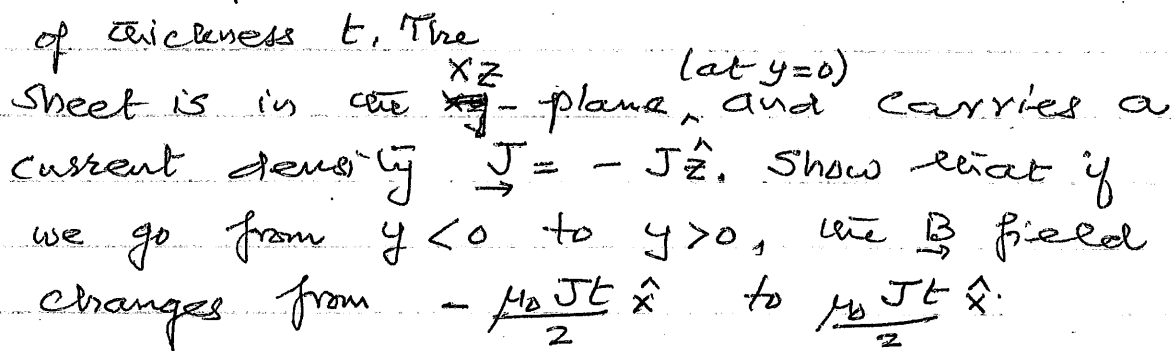 of thickness t. The
sheet is in the xz-plane (at y=0) and carries a
current density J = - Jẑ. Show that if
we go from y < 0 to y > 0, the B field
changes from - μ₀Jt/2 x̂ to μ₀Jt/2 x̂.